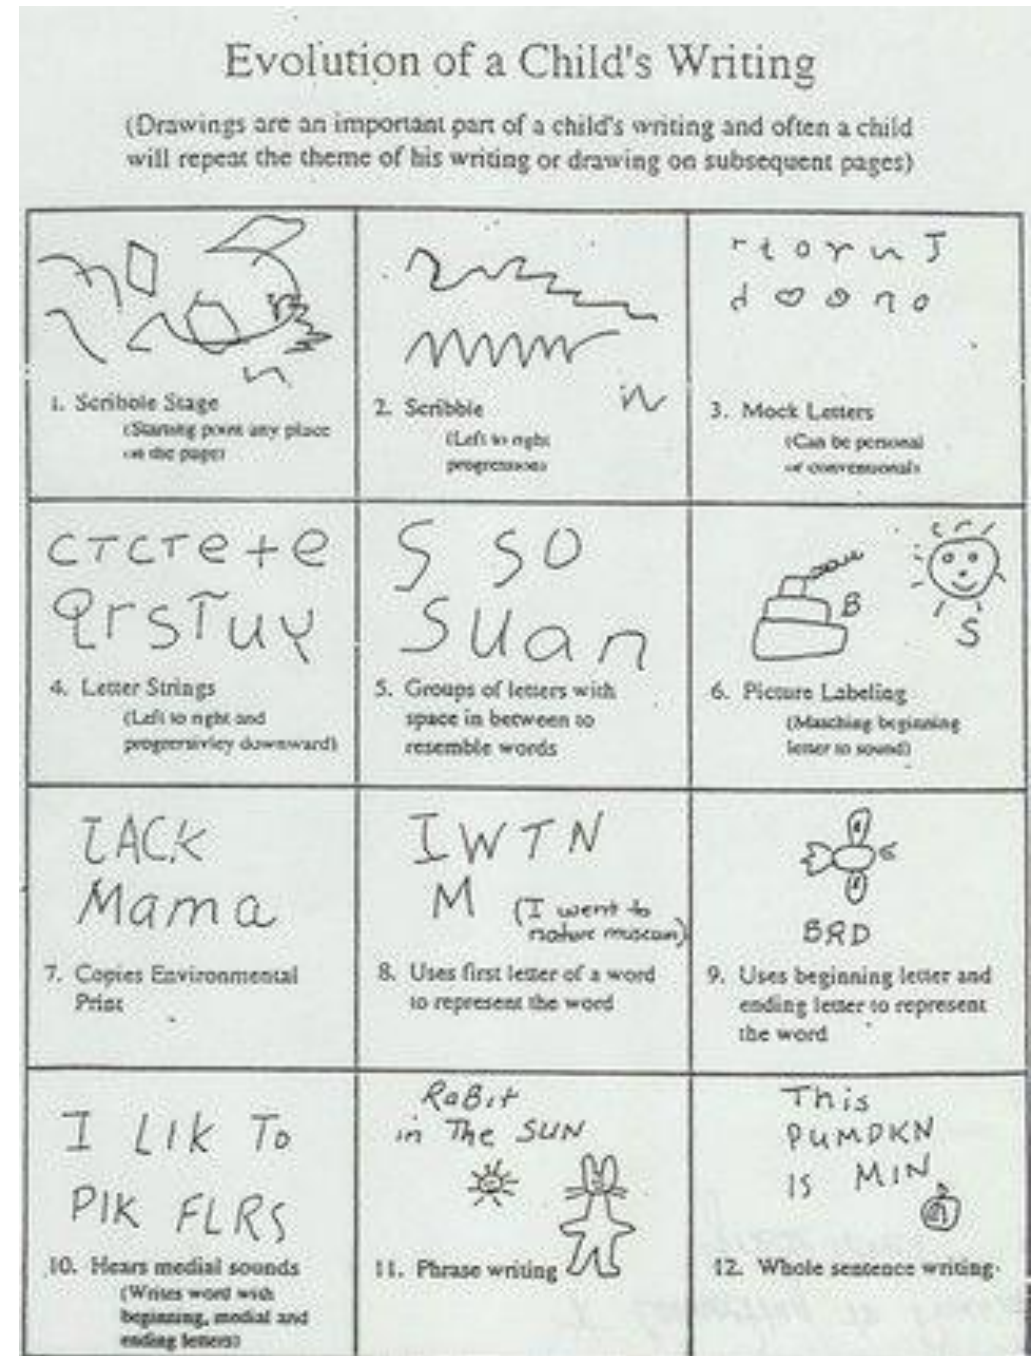 Evolution of a Child's Writing
(Drawings are an important part of a child's writing and often a child
will repeat the theme of his writing or drawing on subsequent pages)
1. Scribble Stage
(Starting point any place
on the page)
2. Scribble
(Left to right
progression)
r t o r u J
d o o n o
3. Mock Letters
(Can be personal
or conventional)
CTCTe+e
QrsTuy
4. Letter Strings
(Left to right and
progressivley downward)
S SO
Suan
5. Groups of letters with
space in between to
resemble words
B
S
6. Picture Labeling
(Matching beginning
letter to sound)
ZACK
Mama
7. Copies Environmental
Print
IWTN
M (I went to
nature museum)
8. Uses first letter of a word
to represent the word
BRD
9. Uses beginning letter and
ending letter to represent
the word
I LIK To
PIK FLRS
10. Hears medial sounds
(Writes word with
beginning, medial and
ending letters)
RaBit
in The SUN
11. Phrase writing
This
PUMPKN
IS MIN
12. Whole sentence writing